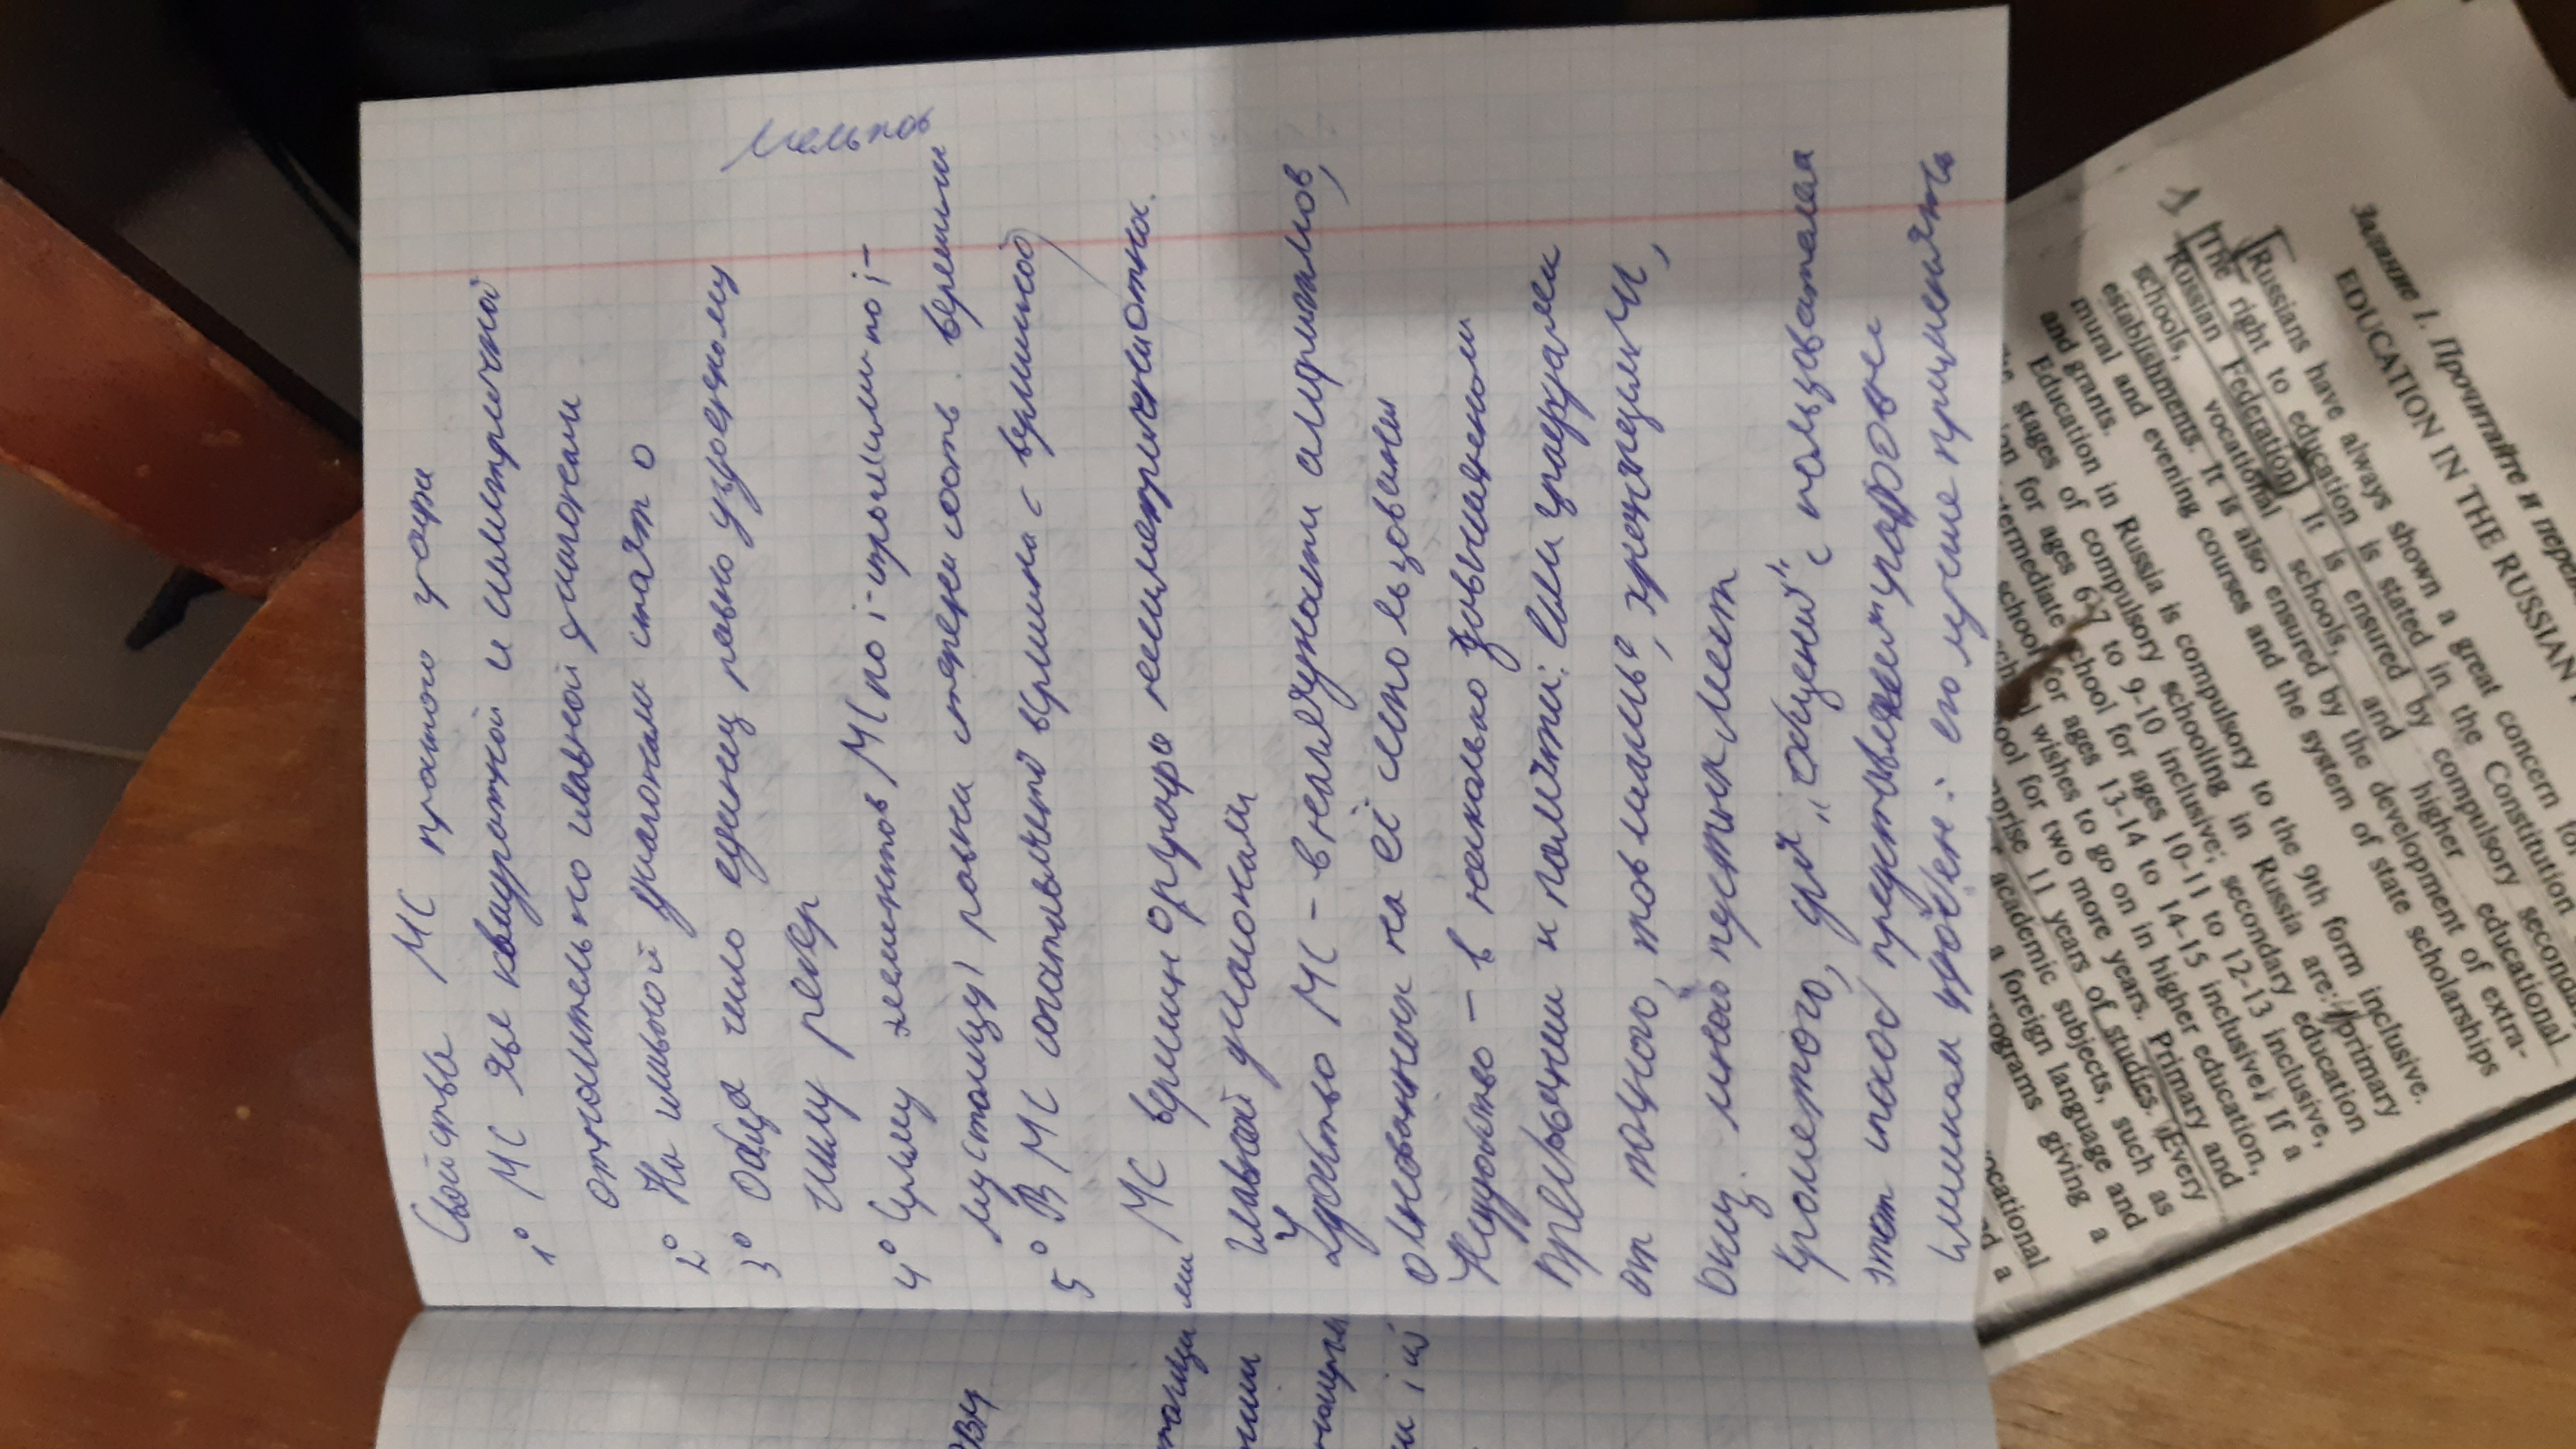 Свойства МС простого графа
1° МС явл квадратной и симетричной
относительно главной диагонали
2° На главной диагонали стоят 0
3° Общее число единиц равно удвоенному
числу ребер
4° Сумму элементов МС по i-строке (или по i-
му столбцу) равна степени соотв. вершины
5° В МС сопоставляется вершина с вершиной
МС вершин орграфа несиметрична отно.
главной диагонали
Удобство МС - в наглядности алгоритмов,
основанных на её использовании
Неудобство - в несколько завышенном
требовании к памяти: если граф далек
от полного, то в массиве, хранящем МС,
окаж. много пустых мест
Кроме того, для "общения" с пользователем
этот способ представления графов не
слишком удобен: его лучше применять
Задание 1. Прочитайте и
EDUCATION IN THE RUSSIAN
Russians have always shown a great concern
right to education is stated in the Constitution
Russian Federation. It is ensured by compulsory
schools, vocational schools, and higher educational
establishments. It is also ensured by the development of extra-
mural and evening courses and the system of state scholarships
and grants.
Education in Russia is compulsory to the 9th form inclusive.
stages of compulsory schooling in Russia are: primary
for ages 6-7 to 9-10 inclusive; secondary education
school for ages 10-11 to 12-13 inclusive,
for ages 13-14 to 14-15 inclusive; If a
wishes to go on in higher education,
for two more years. Primary and
11 years of studies. Every
academic subjects, such as
a foreign language and
giving a